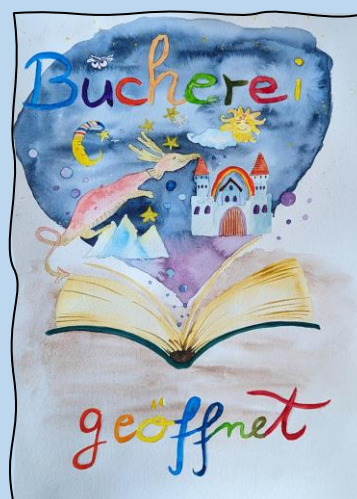 Bücherei
geöffnet